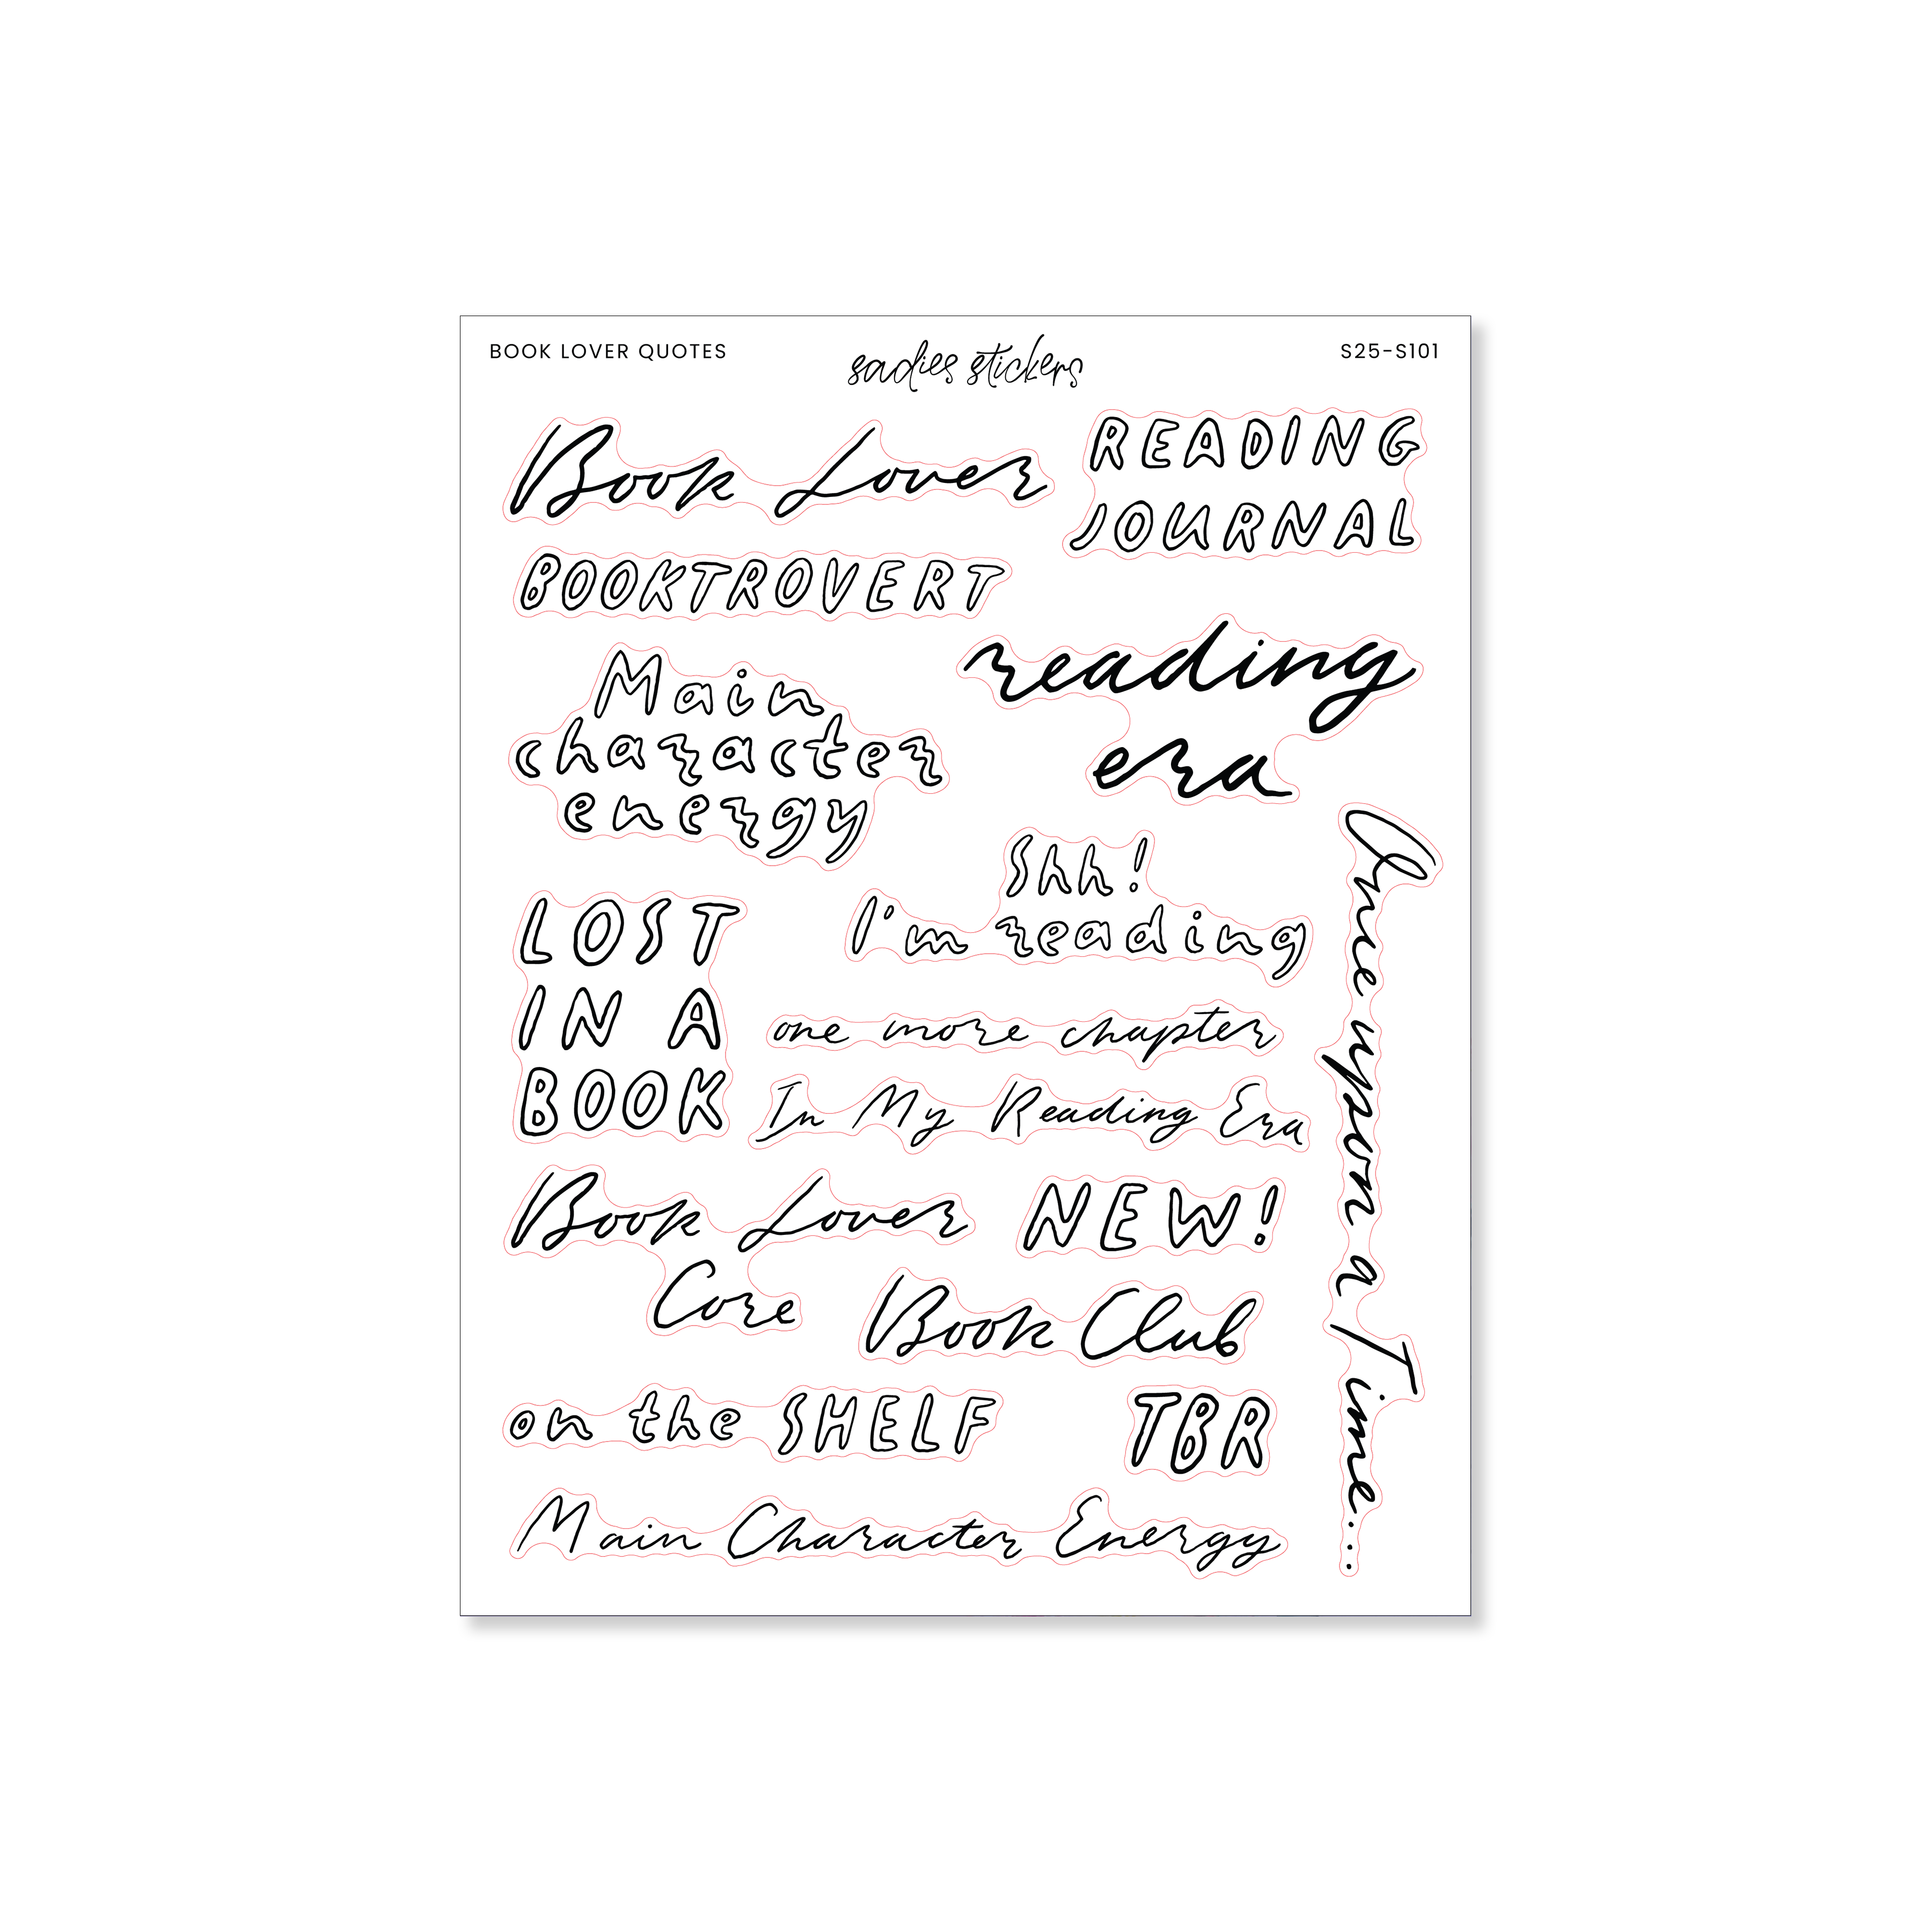 BOOK LOVER QUOTES
sadies stickers
S25-S101
Book Lover
READING
JOURNAL
BOOKTROVERT
reading
era
Main
character
energy
Shh!
I'm reading
Once upon a Time...
LOST
IN A
BOOK
one more chapter
In My Reading Era
Book Lover
Core
NEW!
Book Club
on the SHELF
TBR
Main Character Energy